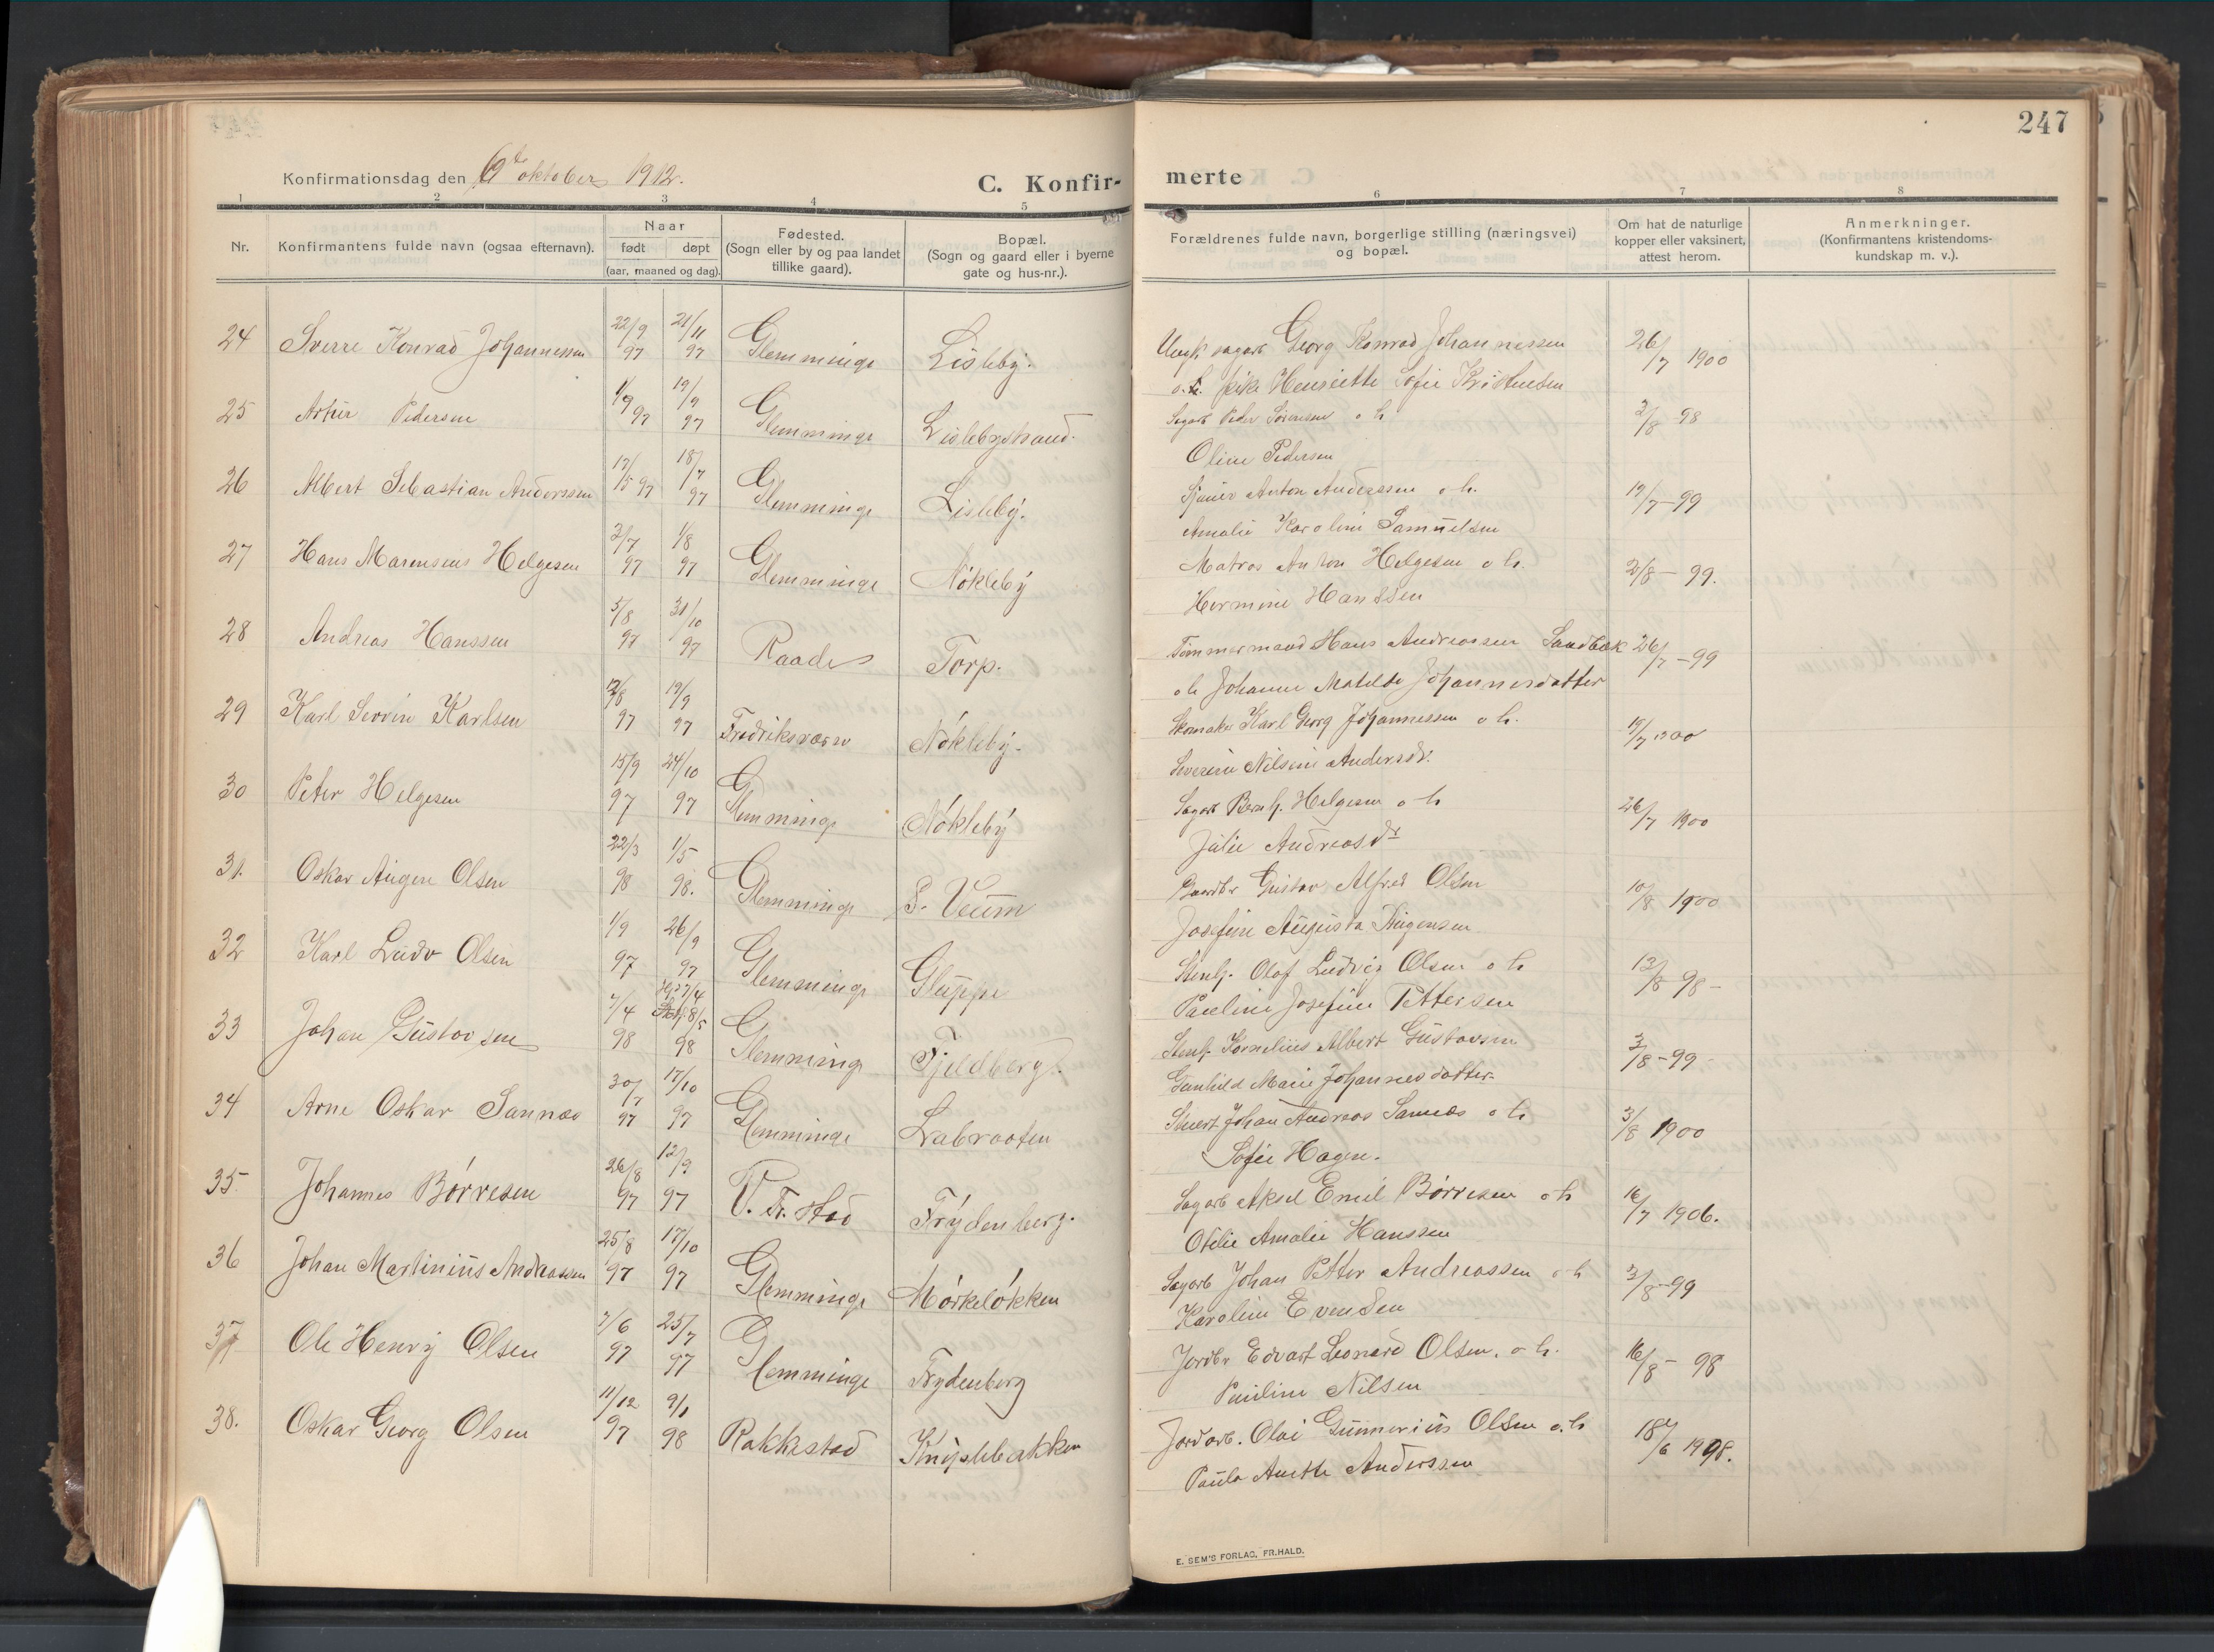 247
Konfirmationsdag den 6te oktober 1912.
C. Konfir-
merte
1 2 3 4 5 6 7 8
Nr.
Konfirmantens fulde navn (ogsaa efternavn).
Naar
født døpt
(aar, maaned og dag).
Fødested.
(Sogn eller by og paa landet
tillike gaard).
Bopæl.
(Sogn og gaard eller i byerne
gate og hus-nr.).
Forældrenes fulde navn, borgerlige stilling (næringsvei)
og bopæl.
Om hat de naturlige
kopper eller vaksinert,
attest herom.
Anmerkninger.
(Konfirmantens kristendoms-
kundskap m. v.).
24 Sverre Konrad Johannessen 22/9 97 21/11 97 Glemminge Lisleby. Georg Konrad Johannessen 26/7 1900
pike Henriette Sofie Kristensen
25 Artur Pedersen 1/9 97 19/9 97 Glemminge Lislebystrand. Sagarb Peder Sørensen o h 2/8 98
Oline Pedersen
26 Albert Sebastian Anderssen 17/5 97 18/7 97 Glemminge Lisleby. Anton Anderssen o h. 19/7-99
Amalie Karoline Samuelsen
27 Hans Marensius Helgesen 3/7 97 1/8 97 Glemminge Nókleby Matros Anton Helgesen o h. 2/8-99.
Hermine Hanssen
28 Andreas Hanssen 5/8 97 31/10 97 Raade Torp. Tømmermand Hans Andreassen Sandbæk 26/7-99
o h Johanne Matilde Johannesdatter
29 Karl Severin Karlsen 97 19/9 97 Fredriksværn Nókleby. Skomaker Karl Georg Johannessen o h. 19/7 1900
Severine Nilsine Andersdr.
30 Peter Helgesen 15/9 97 24/10 97 Glemminge Nókleby Sagarb Bernh. Helgesen o h 26/7 1900
Julie Andreasdr
31. Oskar Augen Olsen 22/3 98 1/5 98. Glemminge S. Veum Gustav Alfred Olsen 10/8 1900
Josefine Augusta
32 Karl Ludv Olsen 1/9 97 26/9 97 Glemminge Gluppe Stenh. Olaf Ludvig Olsen o h 12/8 98-
Pauline Josefine Pettersen
33 Johan Gustavsen 7/4 98 8/5 98 Glemminge Fjeldberg. Stenh. Kornelius Albert Gustavsen 3/8-99-
Gunhild Marie Johannesdatter
34 Arne Oskar Sannæs 30/7 97 17/10 97 Glemminge Labraaten Johan Andreas Sannæs o h 3/8 1900
Sofie Hagen.
35 Johannes Børresen 26/8 97 12/9 97 V. Fr. stad Frydenberg. Sagarb Aksel Emil Børresen o h 16/7 1906.
Otilie Amalie Hanssen
36 Johan Martinius Andreassen 25/8 97 17/10 97 Glemminge Mórkelókken Sagarb Johan Petter Andreassen o h 3/8-99
Karoline Evensen
37 Ole Henry Olsen 7/6 97 25/7 97 Glemminge Frydenberg Jordbr Edvart Leonard Olsen. o h. 16/8- 98
Pauline Nilsen
38. Oskar Georg Olsen 11/12 97 9/1 98 Rakkestad Jordarb. Olai Gunnerius Olsen o. h
Paula Anette Anderssen
E. SEM'S FORLAG, FR.HALD.